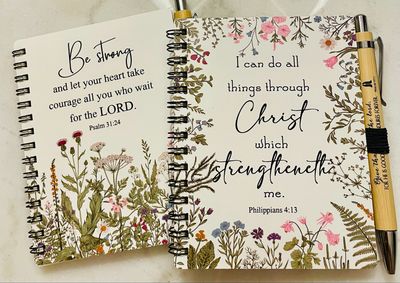 Be strong
and let your heart take
courage all you who wait
for the LORD.
Psalm 31:24
I can do all
things through
Christ
which
strengtheneth
me.
Philippians 4:13
Give
the lord,
for he is good